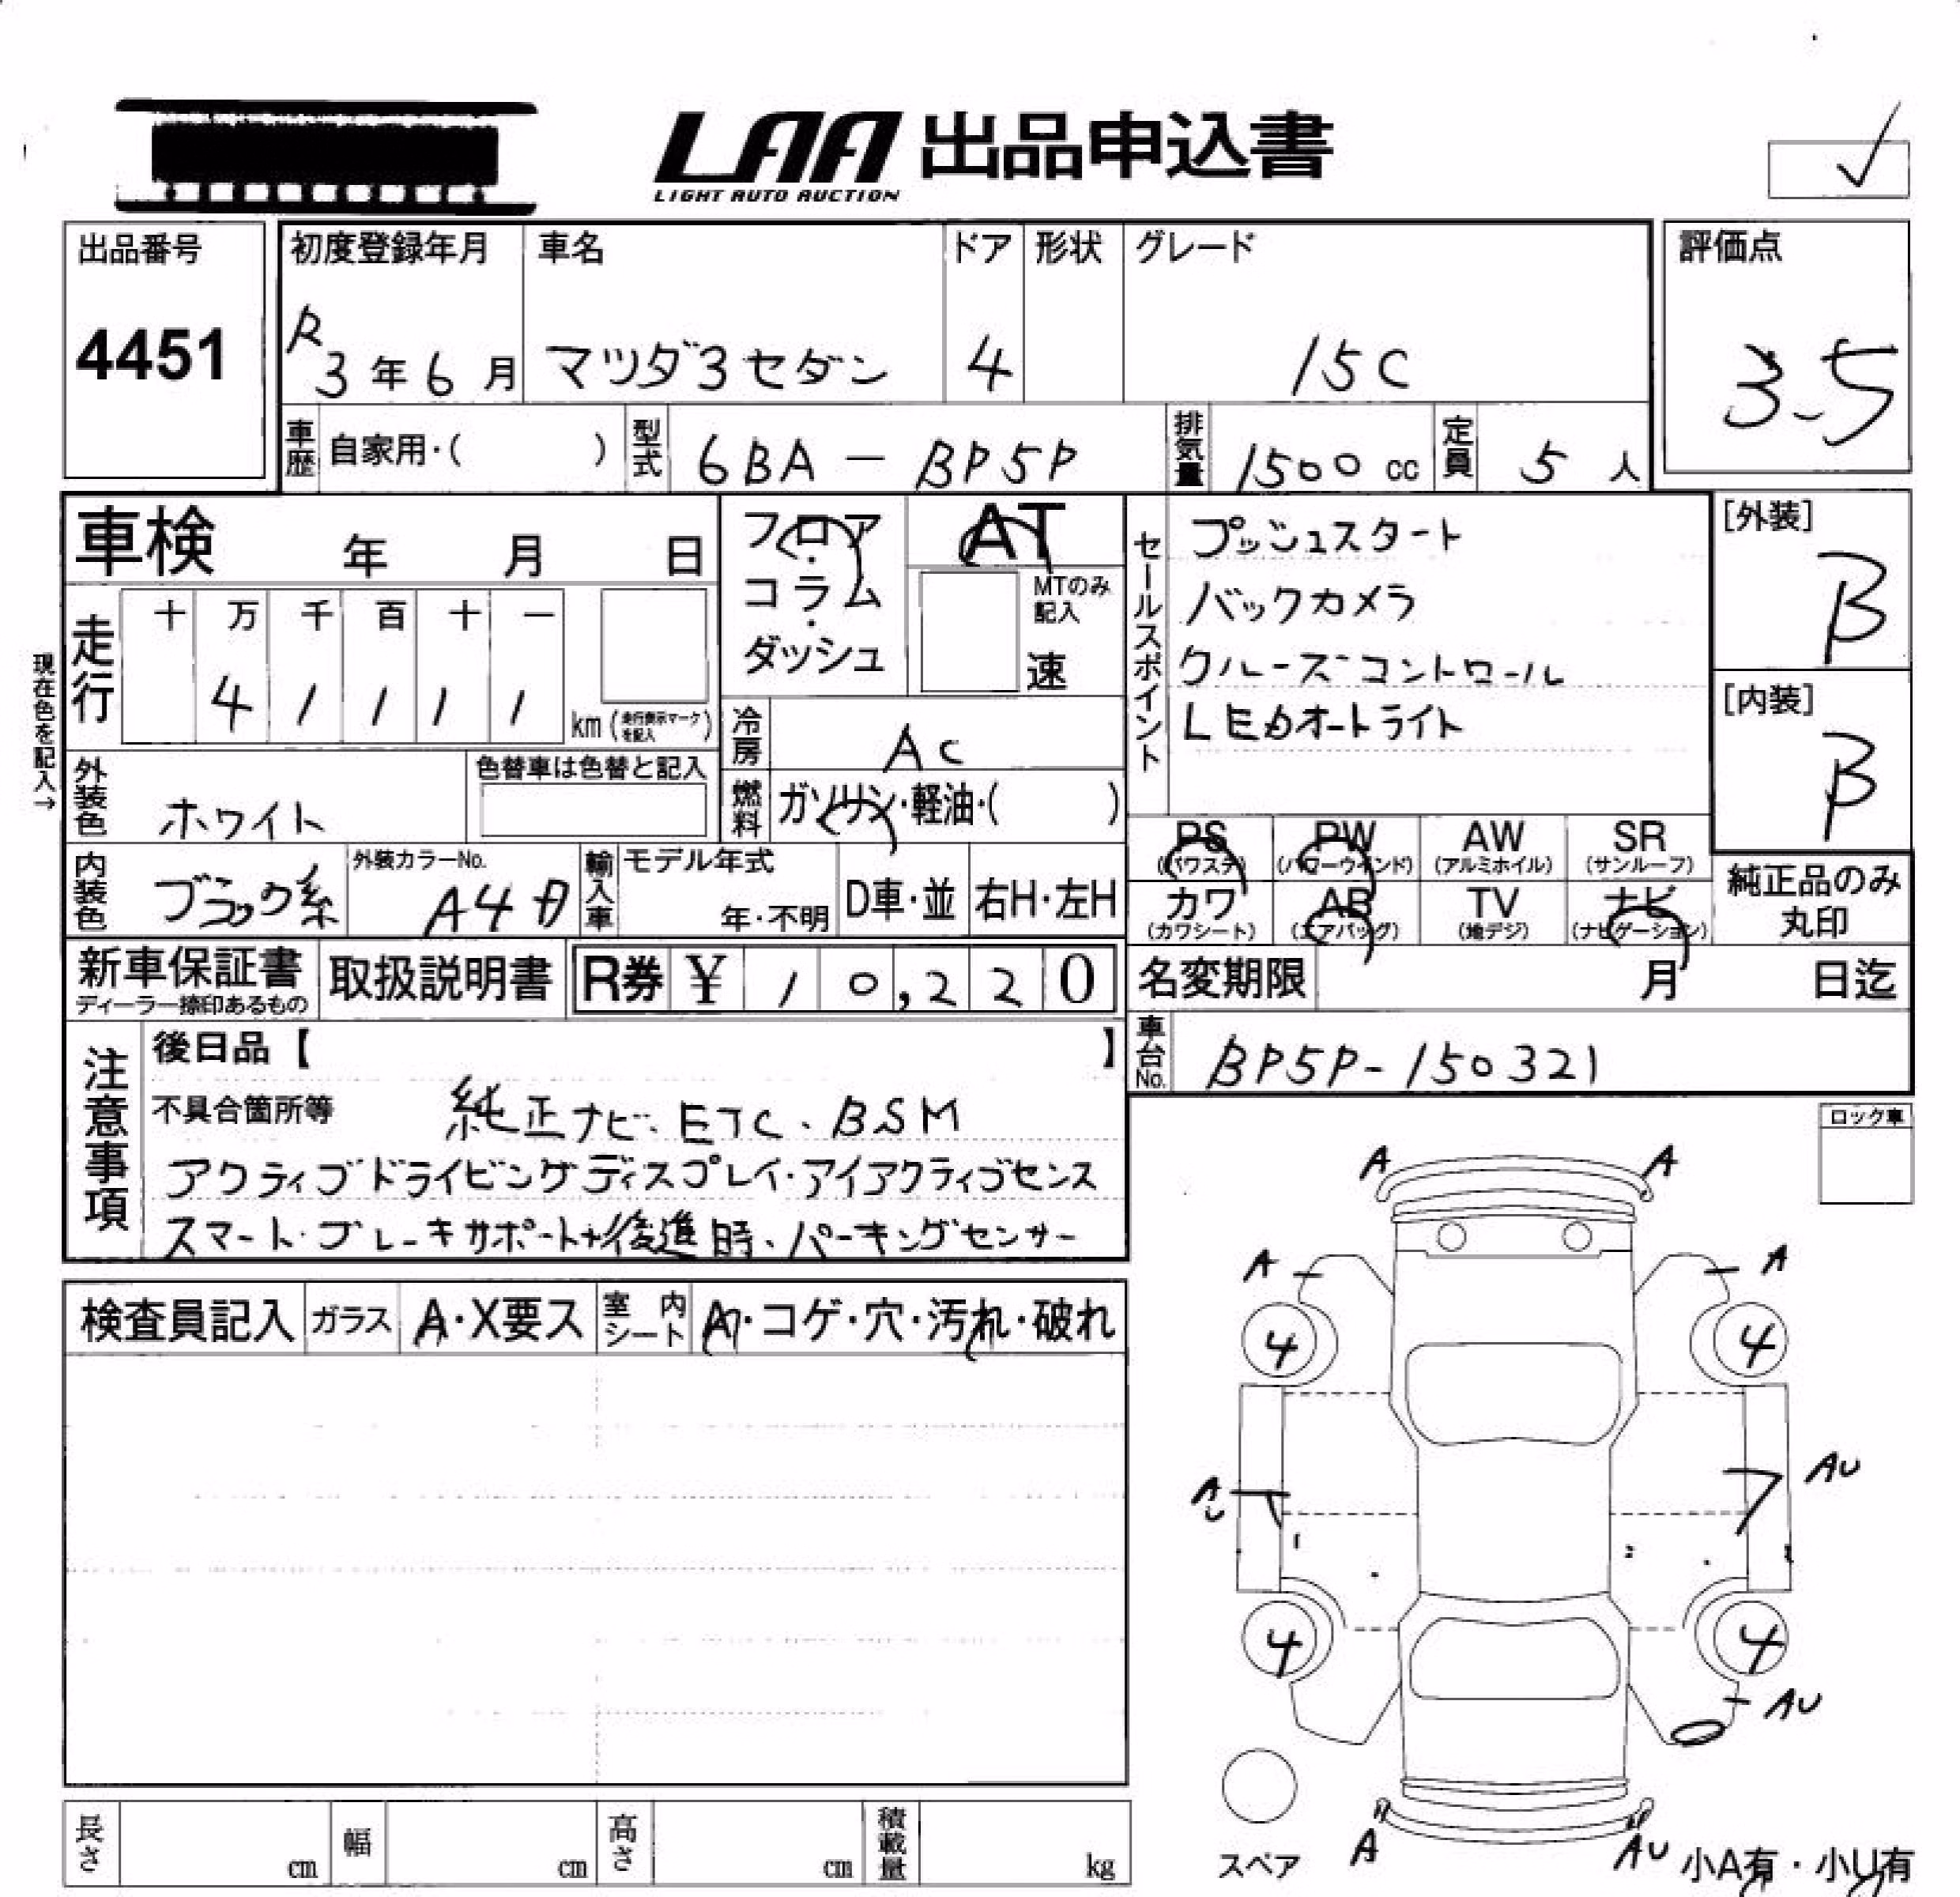 LAA 出品申込書
LIGHT AUTO AUCTION
出品番号
4451
初度登録年月
R3年6月
車名
マツダ3セダン
ドア
4
形状
グレード
15C
評価点
3.5
車歴 自家用・( )
型式 6BA-BP5P
排気量 1500cc
定員 5人
車検 年 月 日
フロア・コラム・ダッシュ
AT
MTのみ記入
速
セールスポイント
プッシュスタート
バックカメラ
クルーズコントロール
LEDオートライト
[外装]
B
[内装]
B
現在色を記入→
走行
十 万 千 百 十 一
4 1 1 1 1
km(走行表示マークを記入)
冷房 AC
燃料 ガソリン・軽油・( )
外装色 ホワイト
色替車は色替と記入
PS (パワステ) PW (パワーウインド) AW (アルミホイル) SR (サンルーフ)
カワ (カワシート) AB (エアバッグ) TV (地デジ) ナビ (ナビゲーション)
純正品のみ丸印
内装色 ブラック系
外装カラーNo.
A4D
輸入車
モデル年式
年・不明
D車・並
右H・左H
新車保証書
ディーラー捺印あるもの
取扱説明書
R券 ¥ 10,220
名変期限 月 日迄
車台No. BP5P-150321
注意事項
後日品【 】
不具合箇所等 純正ナビ、ETC、BSM
アクティブドライビングディスプレイ・アイアクティブセンス
スマート・ブレーキサポート+後進時、パーキングセンサー
ロック車
検査員記入 ガラス A・X要ス 室内シート A・コゲ・穴・汚れ・破れ
A A
A A
4 4
AU AU
4 4
AU
スペア
A AU
小A有・小U有
長さ cm 幅 cm 高さ cm 積載量 kg